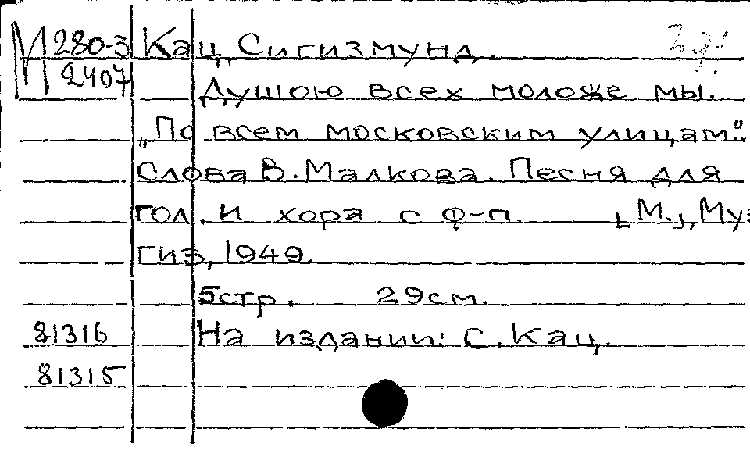 М 280-3 Кац, Сигизмунд.
2407
Душою всех моложе мы.
„По всем московским улицам“.
Слова В. Малкова. Песня для
гол. и хора с ф-п. [М.], Муз
гиз, 1949.
5 стр. 29 см.
81316 На издании: С. Кац.
81315